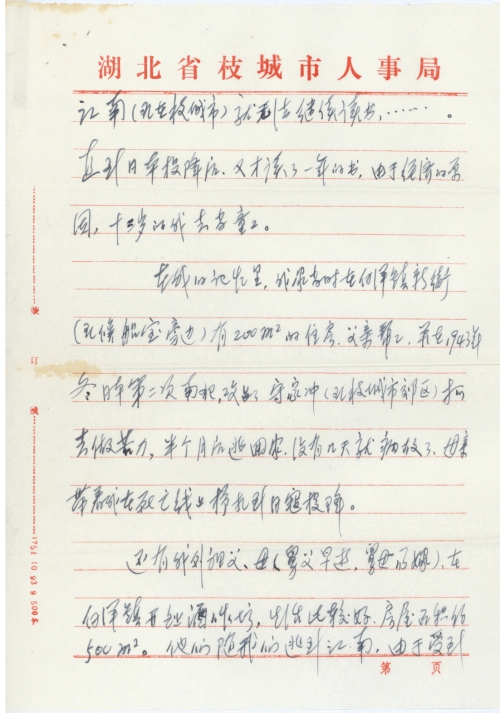 湖北省枝城市人事局
江南(现在枝城市)就无法继续读书,……。
直到日本投降后、又才读了一年的书,由于经济的原
因,十三岁的我去当童工。
在我的记忆里,我家当时在镇新街
(现候船室旁边)有200m²的住房、父亲帮工,并在1943年
冬日本第二次南犯,攻占了守家冲(现枝城市郊区)抓
去做苦力,半个月后逃回家、没有几天就病故了、母亲
带着我在死亡线上挣扎到日寇投降。
还有我外祖父、母(舅父早逝,舅母改嫁)、在
镇开设酒作坊,生活比较好、房屋面积约
500m²。他们随我们逃到江南,由于受到
装
订
线
1751 10 93 9 500本
第 页